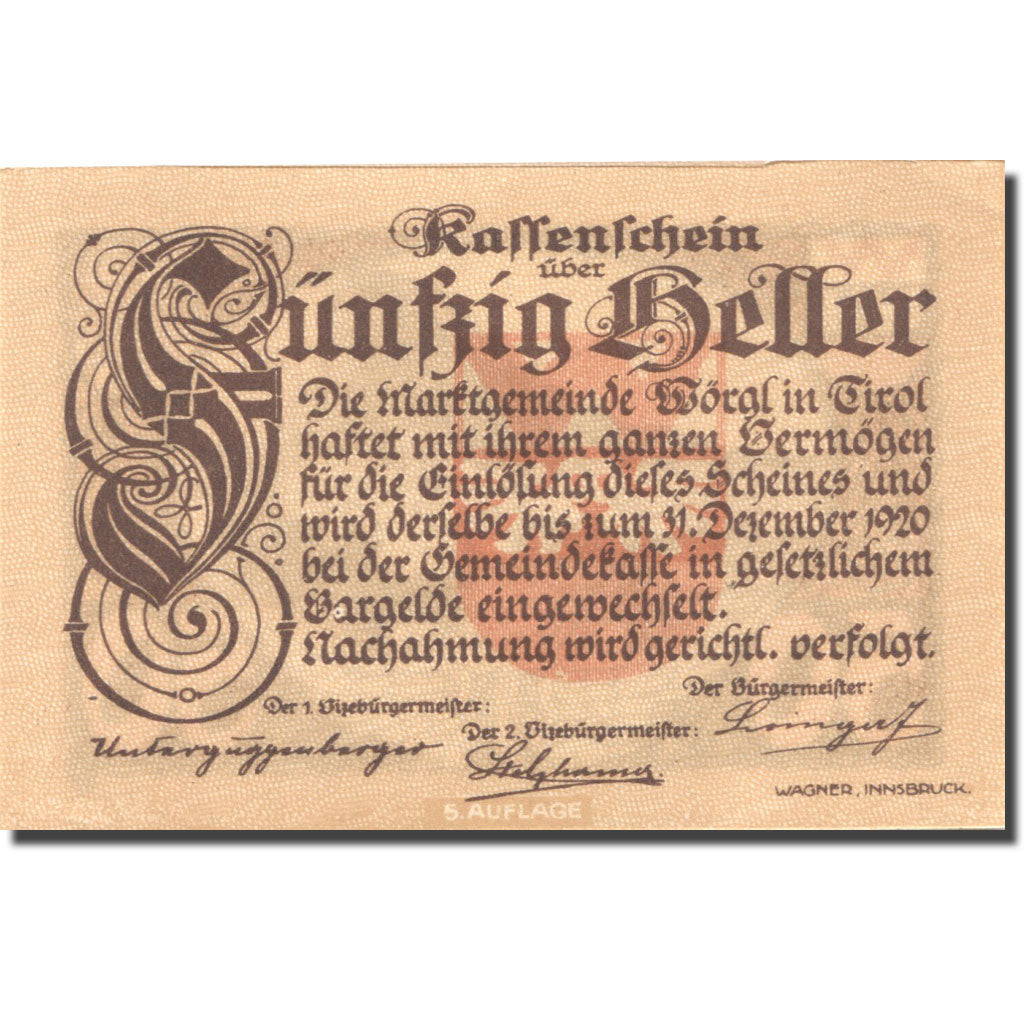 Kassenschein
über
Fünfzig Heller
Die Marktgemeinde Wörgl in Tirol
haftet mit ihrem ganzen Vermögen
für die Einlösung dieses Scheines und
wird derselbe bis zum 31. Dezember 1920
bei der Gemeindekasse in gesetzlichem
Bargelde eingewechselt.
Nachahmung wird gerichtl. verfolgt.
Der 1. Vizebürgermeister:
Unterguggenberger
Der 2. Vizebürgermeister:
Stelzhamer
Der Bürgermeister:
WAGNER, INNSBRUCK.
5. AUFLAGE